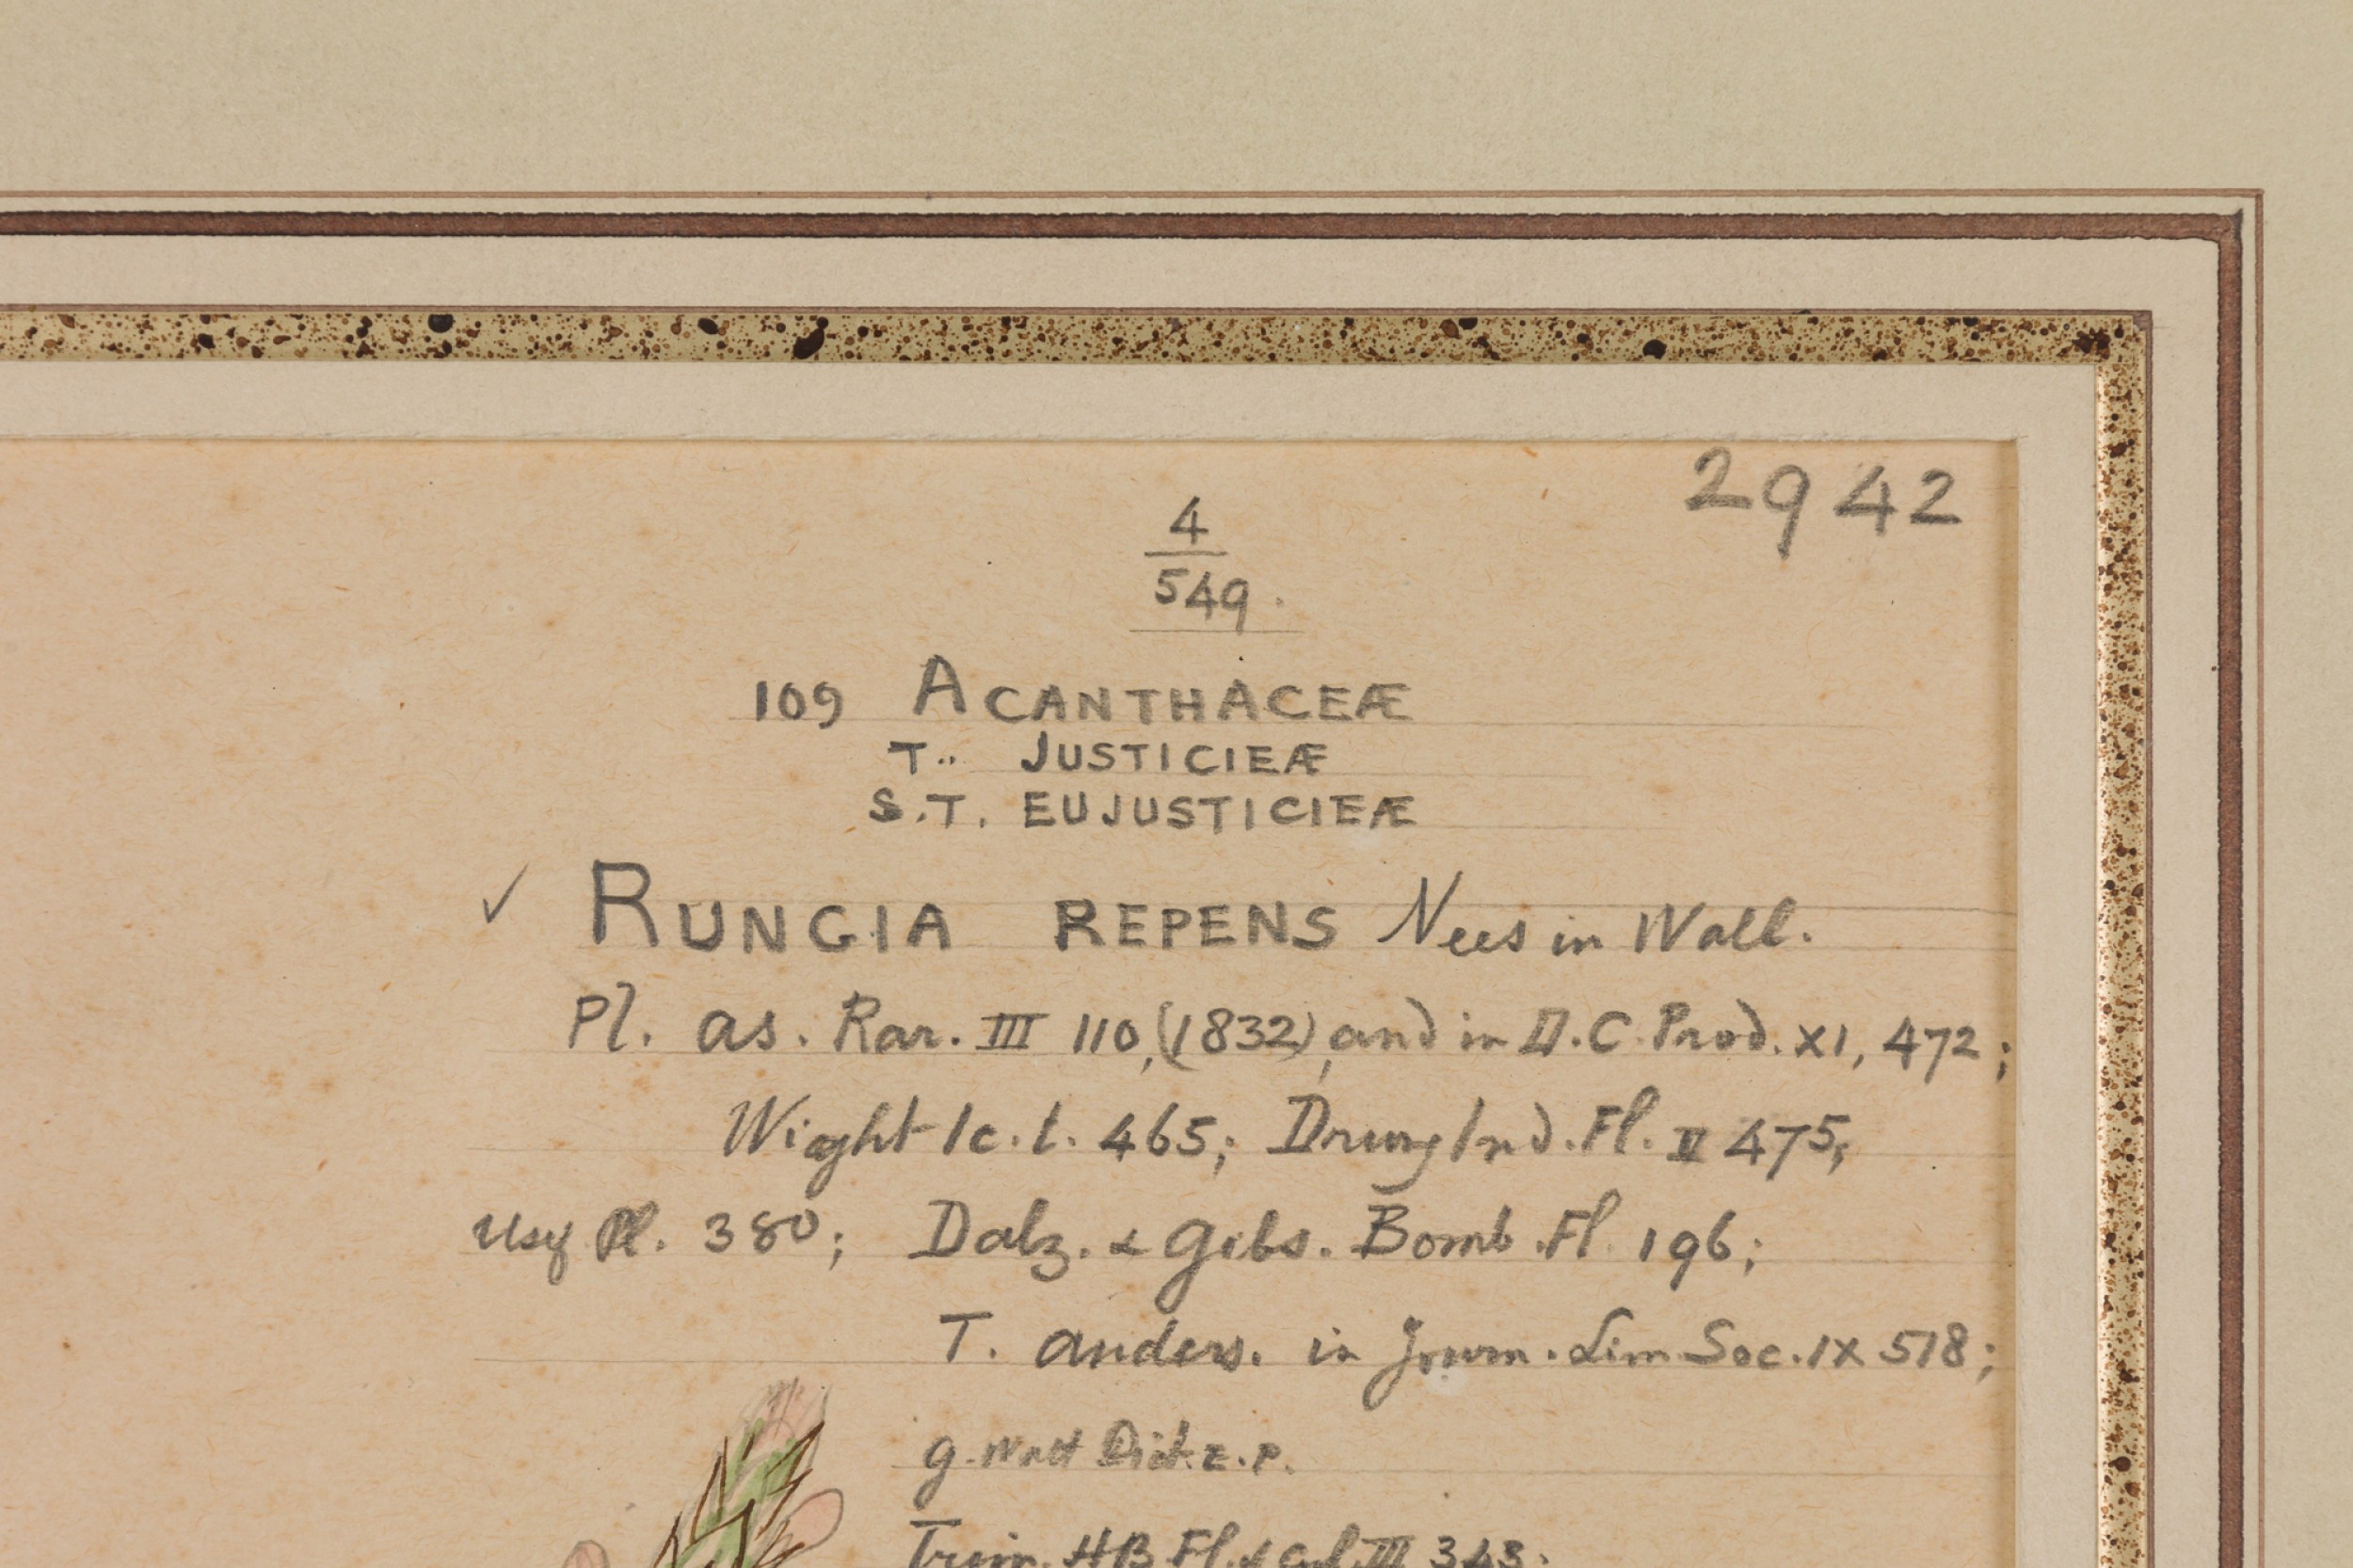 2942
4
549.
109 ACANTHACEÆ
T.. JUSTICIEÆ
S.T. EUJUSTICIEÆ
✓ RUNGIA REPENS Nees in Wall.
Pl. as. Rar. III 110, (1832), and in D.C. Prod. XI, 472;
Wight Ic. t. 465; Drury Ind. Fl. II 475;
Usef Pl. 380; Dalz. & Gibs. Bomb. Fl. 196;
T. Anders. in Journ. Linn Soc. IX 518;
G. Watt Dict. E. P.
Trim. HB. Fl. III